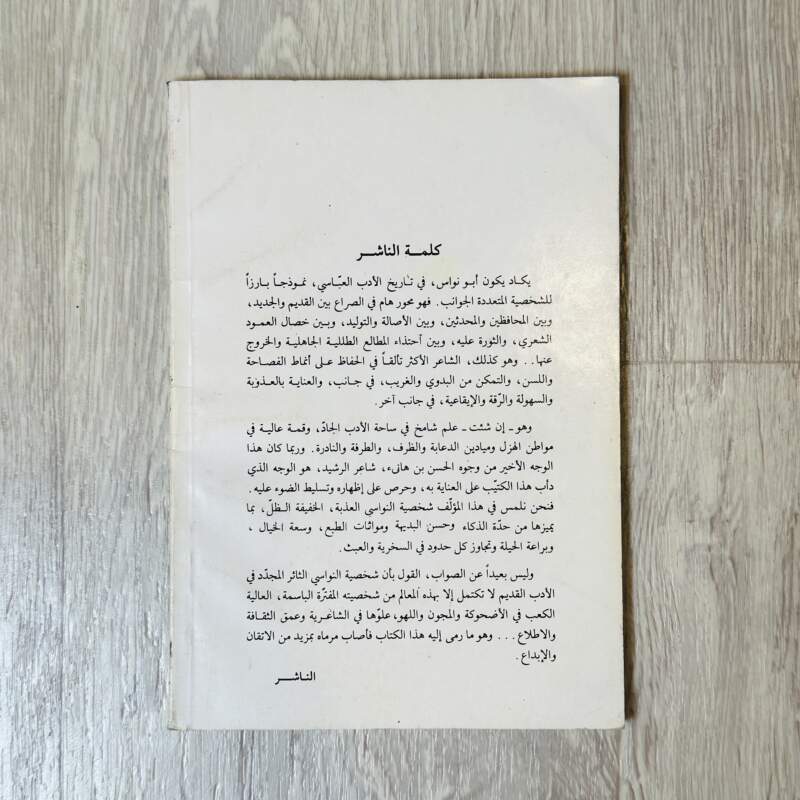 كلمــة الناشــر
يكاد يكون أبو نواس، في تاريخ الأدب العبّاسي، نموذجاً بارزاً
للشخصية المتعددة الجوانب. فهو محور هام في الصراع بين القديم والجديد،
وبين المحافظين والمحدثين، وبين الأصالة والتوليد، وبين خصال العمود
الشعري، والثورة عليه، وبين أحتذاء المطالع الطللية الجاهلية والخروج
عنها.. وهو كذلك، الشاعر الأكثر تألقاً في الحفاظ على أنماط الفصاحة
واللسن، والتمكن من البدوي والغريب، في جانب، والعناية بالعذوبة
والسهولة والرّقة والإيقاعية، في جانب آخر.
وهو ـ إن شئت ـ علم شامخ في ساحة الأدب الجادّ، وقمة عالية في
مواطن الهزل وميادين الدعابة والظرف، والطرفة والنادرة. وربما كان هذا
الوجه الأخير من وجوه الحسن بن هانىء، شاعر الرشيد، هو الوجه الذي
دأب هذا الكتيّب على العناية به، وحرص على إظهاره وتسليط الضوء عليه.
فنحن نلمس في هذا المؤلّف شخصية النواسي العذبة، الخفيفة الظلّ، بما
يميزها من حدّة الذكاء وحسن البديهة ومواتات الطبع، وسعة الخيال،
وبراعة الحيلة وتجاوز كل حدود في السخرية والعبث.
وليس بعيداً عن الصواب، القول بأن شخصية النواسي الثائر المجدّد في
الأدب القديم لا تكتمل إلا بهذه المعالم من شخصيته المفترّة الباسمة، العالية
الكعب في الأضحوكة والمجون واللهو، علوّها في الشاعرية وعمق الثقافة
والاطلاع... وهو ما رمى إليه هذا الكتاب فأصاب مرماه بمزيد من الاتقان
والإبداع.
الناشــر